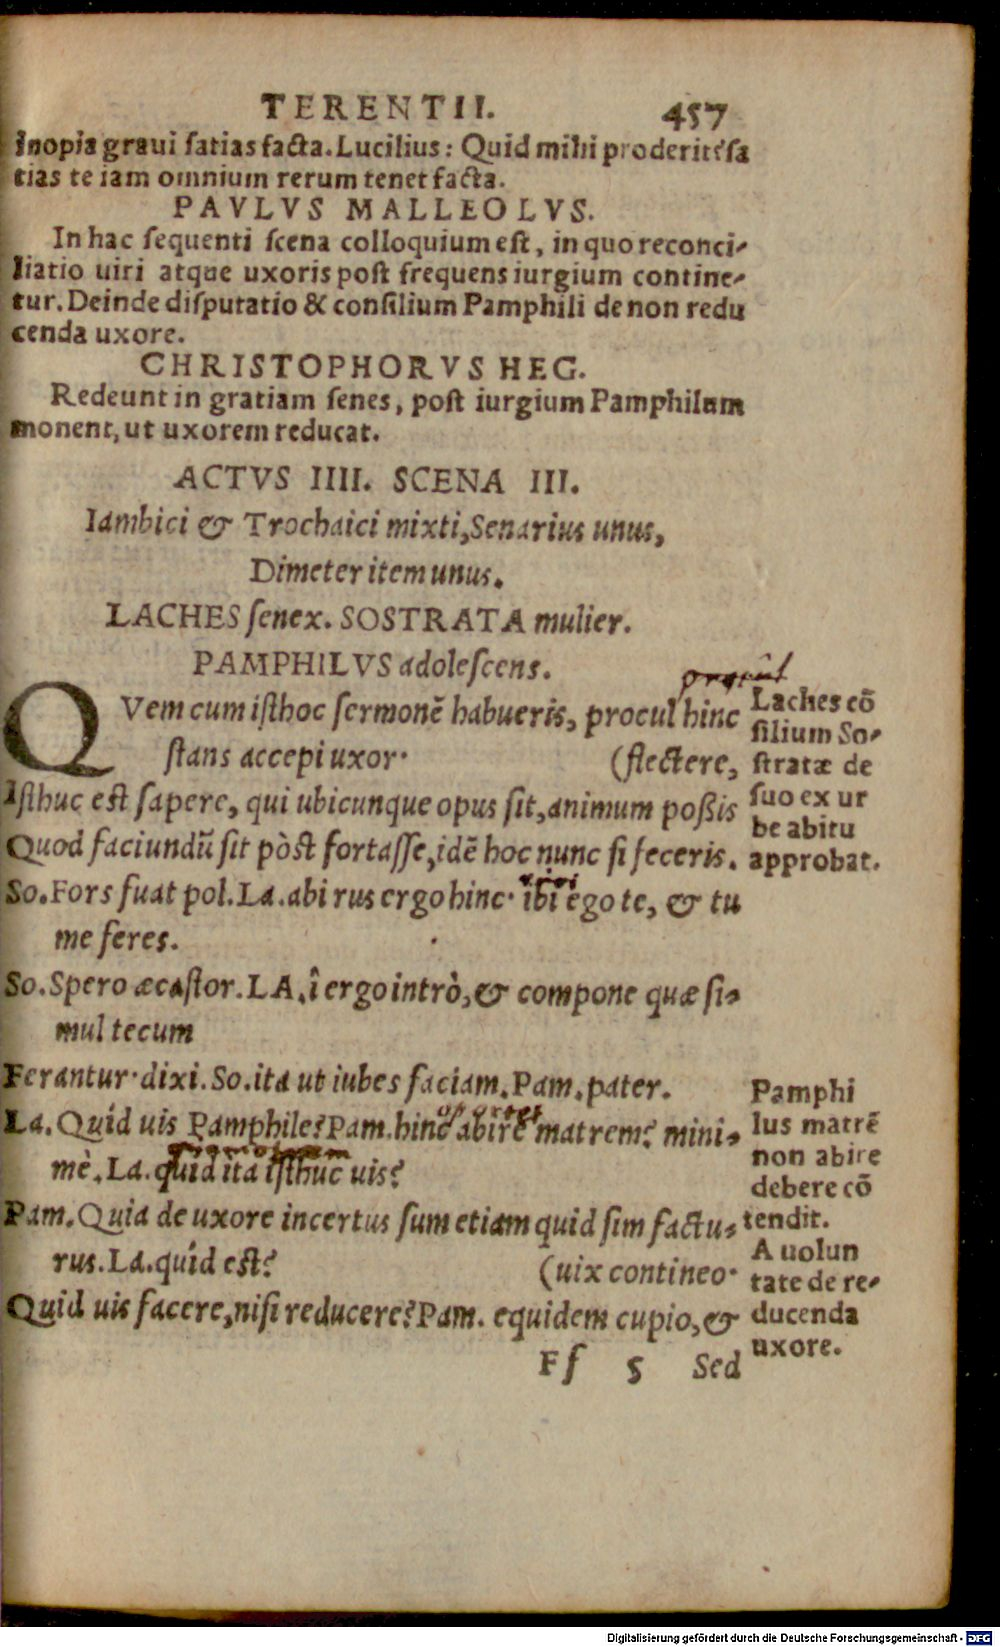 TERENTII. 457
Inopia graui ſatias facta. Lucilius: Quid mihi proderit? ſa
tias te iam omnium rerum tenet facta.
PAVLVS MALLEOLVS.
In hac ſequenti ſcena colloquium eſt, in quo reconci-
liatio uiri atque uxoris poſt frequens iurgium contine-
tur. Deinde diſputatio & conſilium Pamphili de non redu
cenda uxore.
CHRISTOPHORVS HEG.
Redeunt in gratiam ſenes, poſt iurgium Pamphilum
monent, ut uxorem reducat.
ACTVS IIII. SCENA III.
Iambici & Trochaici mixti, Senarius unus,
Dimeter item unus.
LACHES ſenex. SOSTRATA mulier.
PAMPHILVS adoleſcens.
QVem cum iſthoc ſermonē habueris, procul hinc
ſtans accepi uxor· (flectere,
Iſthuc eſt ſapere, qui ubicunque opus ſit, animum poßis
Quod faciundū ſit pòſt fortaſſe, idē hoc nunc ſi feceris.
So. Fors fuat pol. La. abi rus ergo hinc· ibi ego te, & tu
me feres.
So. Spero æcaſtor. LA. î ergo intrò, & compone quæ ſi-
mul tecum
Ferantur· dixi. So. ita ut iubes faciam. Pam. pater.
La. Quid uis Pamphile? Pam. hinc abire matrem? mini-
mè. La. quid ita iſthuc uis?
Pam. Quia de uxore incertus ſum etiam quid ſim factu-
rus. La. quid eſt? (uix contineo·
Quid uis facere, niſi reducere? Pam. equidem cupio, &
Ff 5 Sed
Laches cō
ſilium So-
ſtratæ de
ſuo ex ur
be abitu
approbat.
Pamphi
lus matrē
non abire
debere cō
tendit.
A uolun
tate de re-
ducenda
uxore.
Digitalisierung gefördert durch die Deutsche Forschungsgemeinschaft - DFG